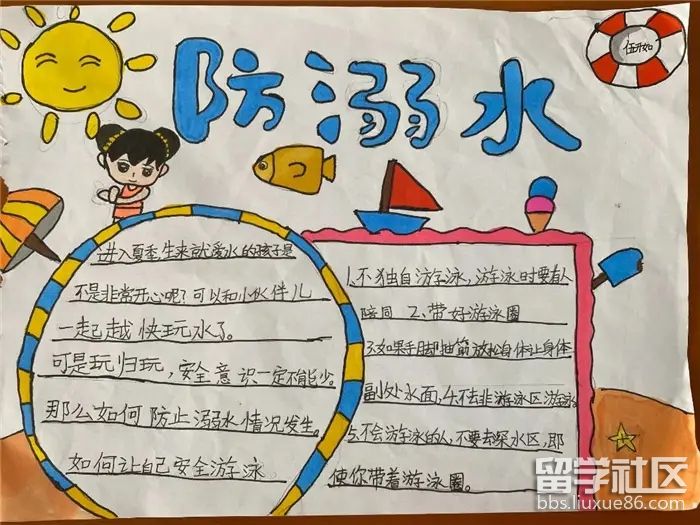 防溺水
伍开如
进入夏季,生来就爱水的孩子是
不是非常开心呢?可以和小伙伴儿
一起越快玩水了。
可是玩归玩,安全意识一定不能少。
那么如何防止溺水情况发生。
如何让自己安全游泳
1、不独自游泳,游泳时要有人
陪同 2、带好游泳圈
3、如果手脚抽筋放松自体让身体
副处水面,4、不去非游泳区游泳
5、不会游泳的人,不要去深水区,即
使你带着游泳圈。
留学社区
bbs.liuxue86.com